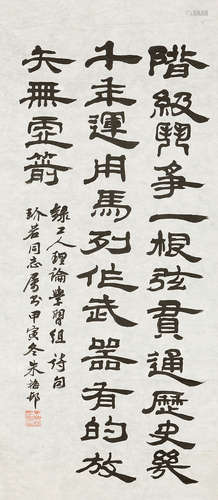 階級鬥爭一根弦貫通歷史幾
千年運用馬列作武器有的放
矢無虛箭
錄工人理論學習組詩句
玠若同志屬書甲寅冬朱梅邨